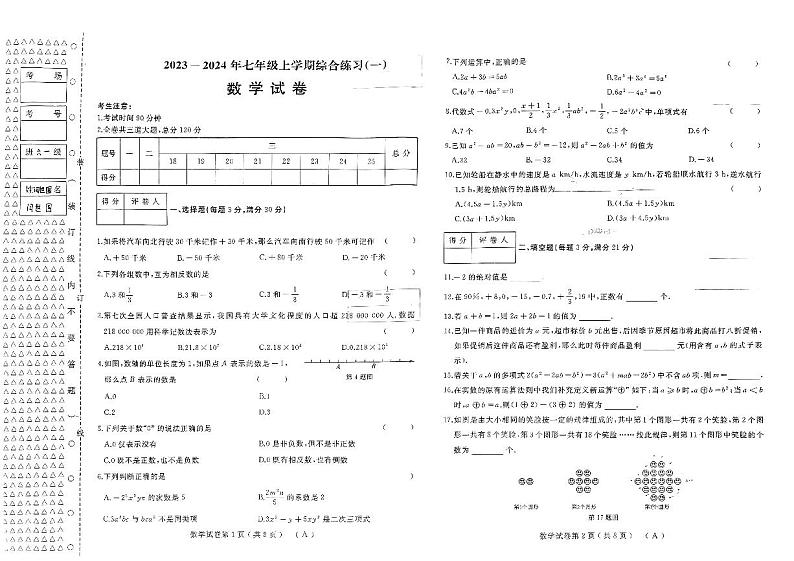 考 场
考 号
班级
姓名
装
订
线
内
不
要
答
题
线
2023－2024 年七年级上学期综合练习(一)
数 学 试 卷
考生注意:
1.考试时间 90 分钟
2.全卷共三道大题,总分 120 分
题号 一 二 三 总 分
18 19 20 21 22 23 24 25
得分
得 分 评 卷 人
一、选择题(每题 3 分,满分 30 分)
1.如果将汽车向北行驶 30 千米记作＋30 千米,那么汽车向南行驶 50 千米可记作 ( )
A.＋50 千米 B.－50 千米 C.＋80 千米 D.－20 千米
2.下列各组数中,互为相反数的是 ( )
A.3 和 1/3 B.3 和－3 C.3 和－1/3 D.－3 和－1/3
3.第七次全国人口普查结果显示,我国具有大学文化程度的人口超 218 000 000 人,数据
218 000 000 用科学记数法表示为 ( )
4.如图,数轴的单位长度为 1,如果点 A 表示的数是－1,
那么点 B 表示的数是 ( )
A B
第 4 题图
A.0 B.1
C.2 D.3
5.下列关于数“0”的说法正确的是 ( )
A.0 仅表示没有 B.0 是非负数,但不是非正数
C.0 既不是正数,也不是负数 D.0 既有相反数,也有倒数
6.下列判断正确的是 ( )
的次数是 5 B. 2m²n/5 的系数是 2
C.3a²bc 与 bca² 不是同类项 D.3x²－y＋5xy² 是二次三项式
数学试卷第 1 页 (A)
7.下列运算中,正确的是 ( )
A.2a＋3b＝5ab B.2a²＋3a²＝5a⁵
C.4a²b－4ba²＝0 D.6a²－4a²＝0
中,单项式有 ( )
A.7 个 B.6 个 C.5 个 D.6 个
9.已知 a²－ab＝20,ab－b²＝－12,则 a²－2ab＋b² 的值为 ( )
A.32 B.－32 C.34 D.－34
10.已知轮船在静水中的速度是 x km/h,水流速度是 y km/h,若轮船顺水航行 3 h,逆水航行
1.5 h,则轮船航行的总路程为 ( )
A.(4.5x－1.5y)km B.(4.5x＋1.5y)km
C.(3x＋1.5y)km D.(3x＋4.5y)km
得 分 评 卷 人
二、填空题(每题 3 分,满分 21 分)
11.－2 的绝对值是
12.在 50%,＋8,0,－15,－0.7,＋2/3,19 中,正数有 个.
13.若 a＋b＝1,则 2a＋2b－1 的值为 .
14.已知一件商品的进价为 a 元,超市标价 b 元出售,后因季节原因超市将此商品打八折促销,
如果促销后这件商品还有盈利,那么此时每件商品盈利 元(用含有 a,b 的式子表
示).
15.若关于 a,b 的多项式 2(a²－2ab－b²)－3(a²＋mab－2b²)中不含 ab 项,则 m＝ .
16.在实数的原有运算法则中我们补充定义新运算“⊕”如下:当 a≥b 时,a⊕b＝b²;当 a＜b
时,a⊕b＝a,则(1⊕2)－(3⊕2)的值为 .
17.如图是由大小相同的笑脸按一定的规律组成的,其中第 1 个图形一共有 2 个笑脸,第 2 个图
形一共有 8 个笑脸,第 3 个图形一共有 18 个笑脸……按此规律,则第 11 个图形中笑脸的个
数为 个.
第1个图形 第2个图形 第3个图形
第 17 题图
数学试卷第 2 页 (A)